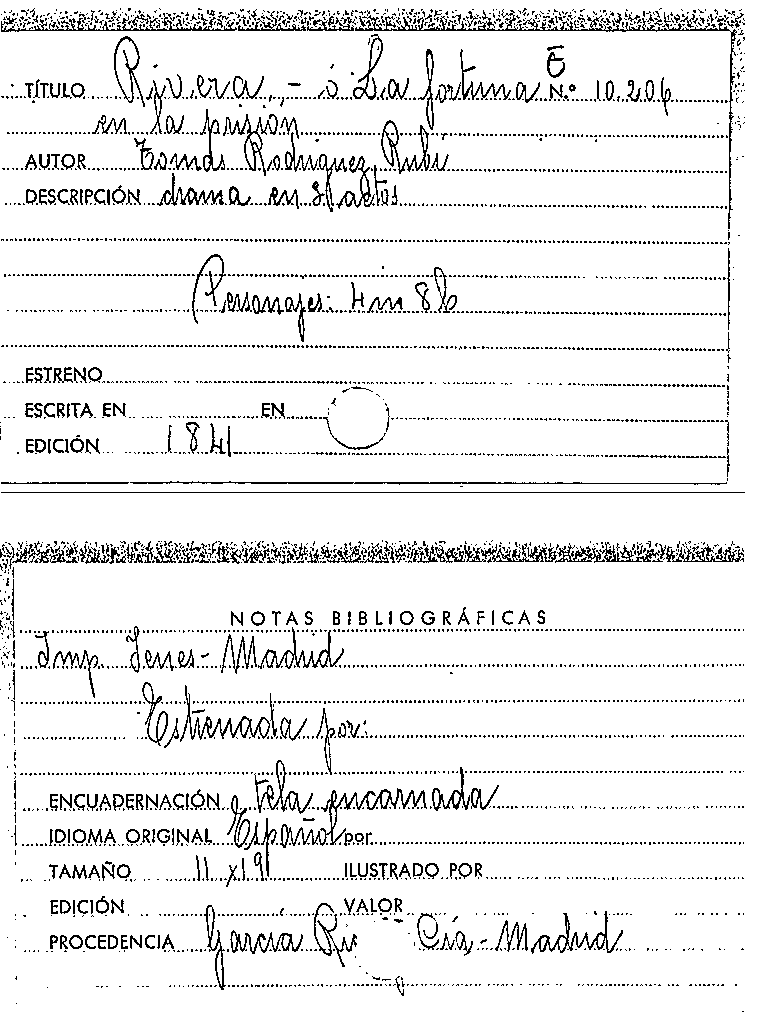 TÍTULO Rivera,- ó La fortuna
E
N.º 10.206
en la prisión
AUTOR Tomás Rodríguez Rubí
DESCRIPCIÓN drama en actos
Personajes: 4 m 8 h
ESTRENO
ESCRITA EN EN
EDICIÓN 1841
NOTAS BIBLIOGRÁFICAS
Imp. Yenes-Madrid
Estrenada por:
ENCUADERNACIÓN tela encarnada
IDIOMA ORIGINAL Español por
TAMAÑO 11 x 19 ILUSTRADO POR
EDICIÓN VALOR
PROCEDENCIA García Cía-Madrid